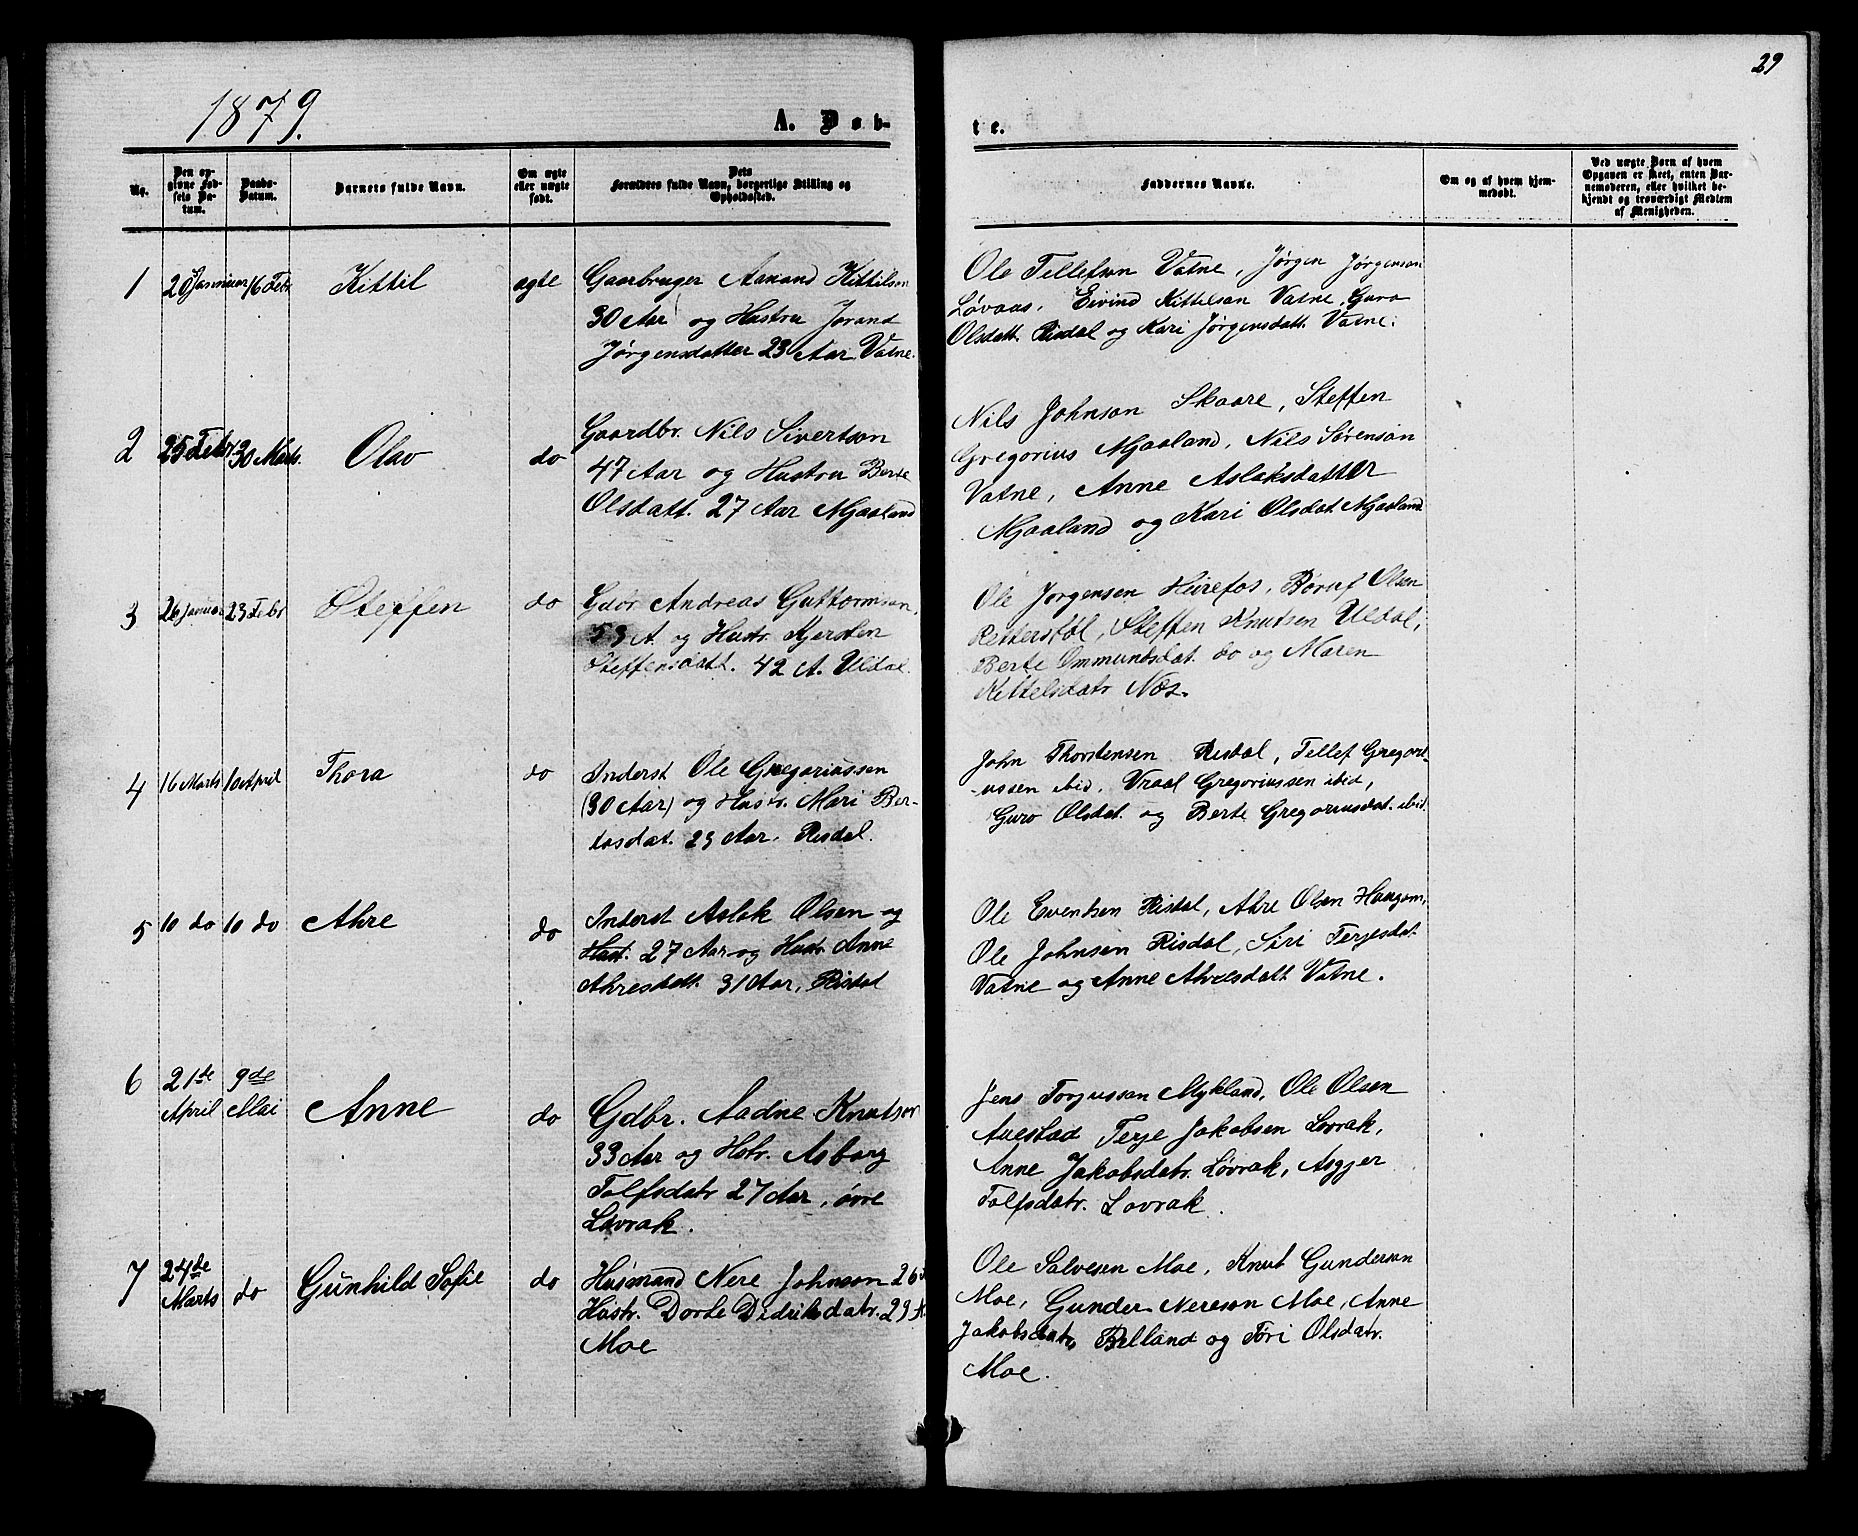 29
1879.
A. Døb-
te.
No.
Den op-
givne Fød-
sels Da-
tum.
Daabs-
Datum.
Barnets fulde Navn.
Om ægte
eller uægte
født.
Dets
Forældres fulde Navn, borgerlige Stilling og
Opholdssted.
Faddernes Navne.
Om og af hvem hjem-
medøbt.
Ved uægte Børn af hvem
Opgaven er skeet, enten Bar-
nemoderen, eller hvilket be-
kjendt og troværdigt Medlem
af Menigheden.
1
20 Januar
16 Febr
Kittil
ægte
Gaarbruger Aanand Kittilson
30 Aar og Hustru Jorand
Jørgensdatter 23 Aar Vatne.
Ole Tellefsen Vatne, Jørgen Jørgenson
Løvaas, Eivind Kittelsan Vatne, Guro
Olsdatt. Risdal og Kari Jørgensdatt. Vatne.
2
25 Febr
30 Mats.
Olav
do
Gaardbr. Nils Sivertson
47 Aar og Hustru Berte
Olsdatt. 27 Aar Mjaaland
Nils Johnson Skaare, Steffen
Gregorius Mjaaland, Nils Sørensøn
Vatne, Anne Aslaksdatter
Mjaaland og Kari Olsdat Mjaaland
3
26 Januar
23 Febr
Steffen
do
Gdbr Andreas Guttormsen,
53 A og Hustr. Kjersten
Steffensdatt. 42 A. Uldal.
Ole Jørgensen Hurefos, Børuf Olsen
Rettersføl, Steffen Knutsen Uldal,
Berte Ommundsdat. do og Maren
Kittelsdatr Næs.
4
16 Marts
10 April
Thora
do
Inderst Ole Gregoriussen
(30 Aar) og Hustr. Mari Ber-
tosdat. 23 Aar. Risdal.
John Thorstensen Risdal, Tellef Gregori-
-ussen ibid. Vraal Gregoriussen ibid,
Guro Olsdat. og Berte Gregoriusdat. ibid.
5
10 do
10 do
Ahre
do
Inderst Aslak Olsen og
Hust. 27 Aar og Hustr Anne
Ahresdatt. 31 Aar, Risdal
Ole Eventsen Risdal, Ahre Olsen Haugom,
Ole Johnsen Risdal, Siri Terjesdat.
Vatne og Anne Ahresdatt Vatne.
6
21de
April
9de
Mai
Anne
do
Gdbr. Aadne Knutson
33 Aar og Hstr. Asborg
Tolfsdatr 27 Aar, øvre
Løvrak.
Jens Torjussen Mykland, Ole Olsen
Auestad Terje Jakobsen Løvrak,
Anne Jakobsdatr. Løvrak, Asgjer
Tolfsdatr. Løvrak.
7
24de
Marts
do
Gunhild Sofie
do
Husmand Nere Johnson 26
Hustr. Dorte Didriksdatr. 29 A
Moe
Ole Salvesen Moe, Knut Gunderson
Moe, Gunder Nereson Moe, Anne
Jakobsdatr, Belland og Tori Olsdatr.
Moe.